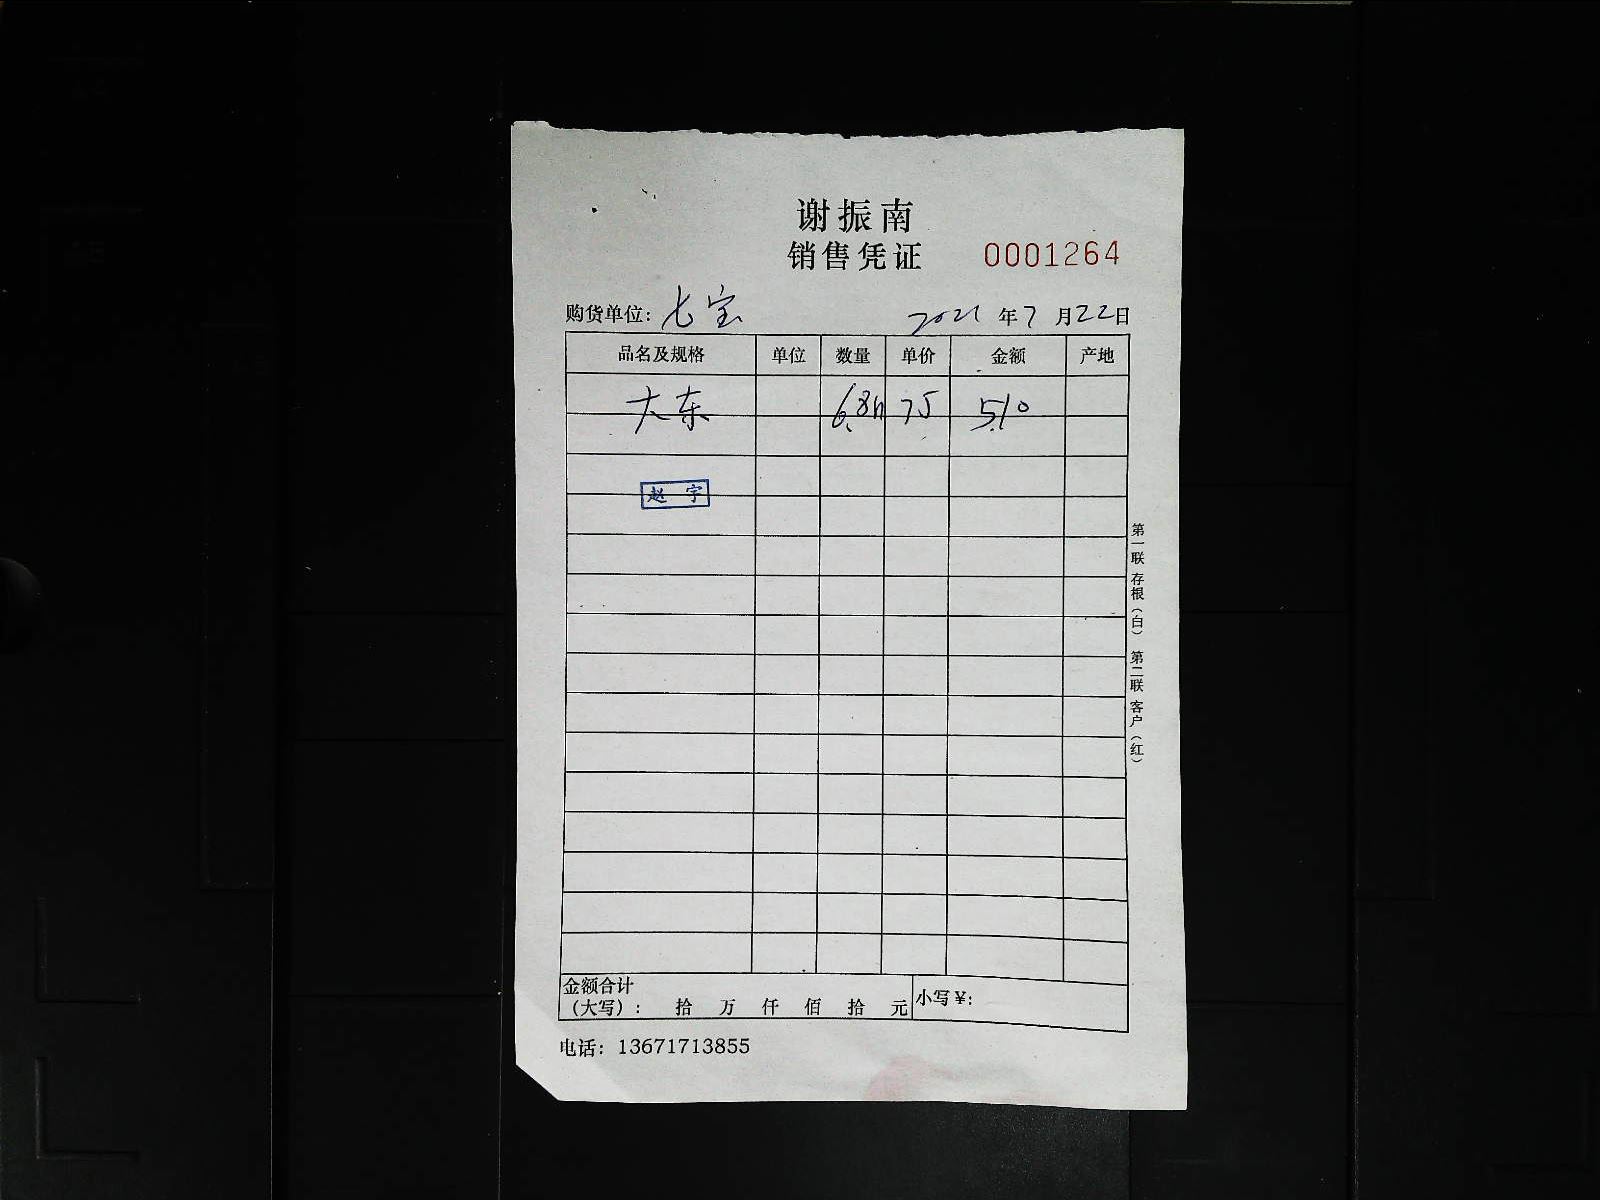 谢振南
销售凭证 0001264
购货单位：七宝 2021年7月22日
品名及规格 单位 数量 单价 金额 产地
大东 6.8 75 510
赵宇
金额合计
（大写）： 拾 万 仟 佰 拾 元 小写￥：
电话：13671713855
第一联 存根（白） 第二联 客户（红）